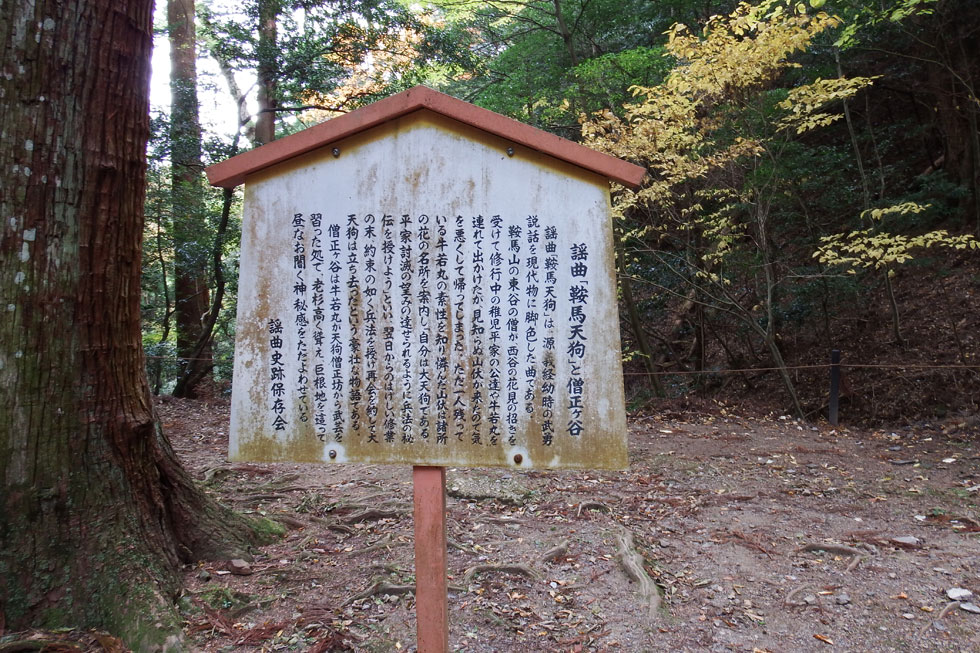 謡曲「鞍馬天狗」と僧正ヶ谷
謡曲「鞍馬天狗」は、源 義経幼時の武勇
説話を現代物に脚色した曲である。
鞍馬山の東谷の僧が西谷の花見の招きを
受けて修行中の稚児平家の公達や牛若丸を
連れて出かけたが、見知らぬ山伏が来たので気
を悪くして帰ってしまった。ただ一人残って
いる牛若丸の素性を知り憐んだ山伏は諸所
の花の名所を案内し、自分は大天狗である
平家討滅の望みの達せられるように兵法の秘
伝を授けよう、といい、翌日からのはげしい修業
の末、約束の如く兵法を授け再会を約して大
天狗は立ち去ったという豪壮な物語である。
僧正ヶ谷は牛若丸が天狗僧正坊から武芸を
習った処で、老杉高く聳え、巨根地を這って
昼なお闇く神秘感をただよわせている
謡曲史跡保存会